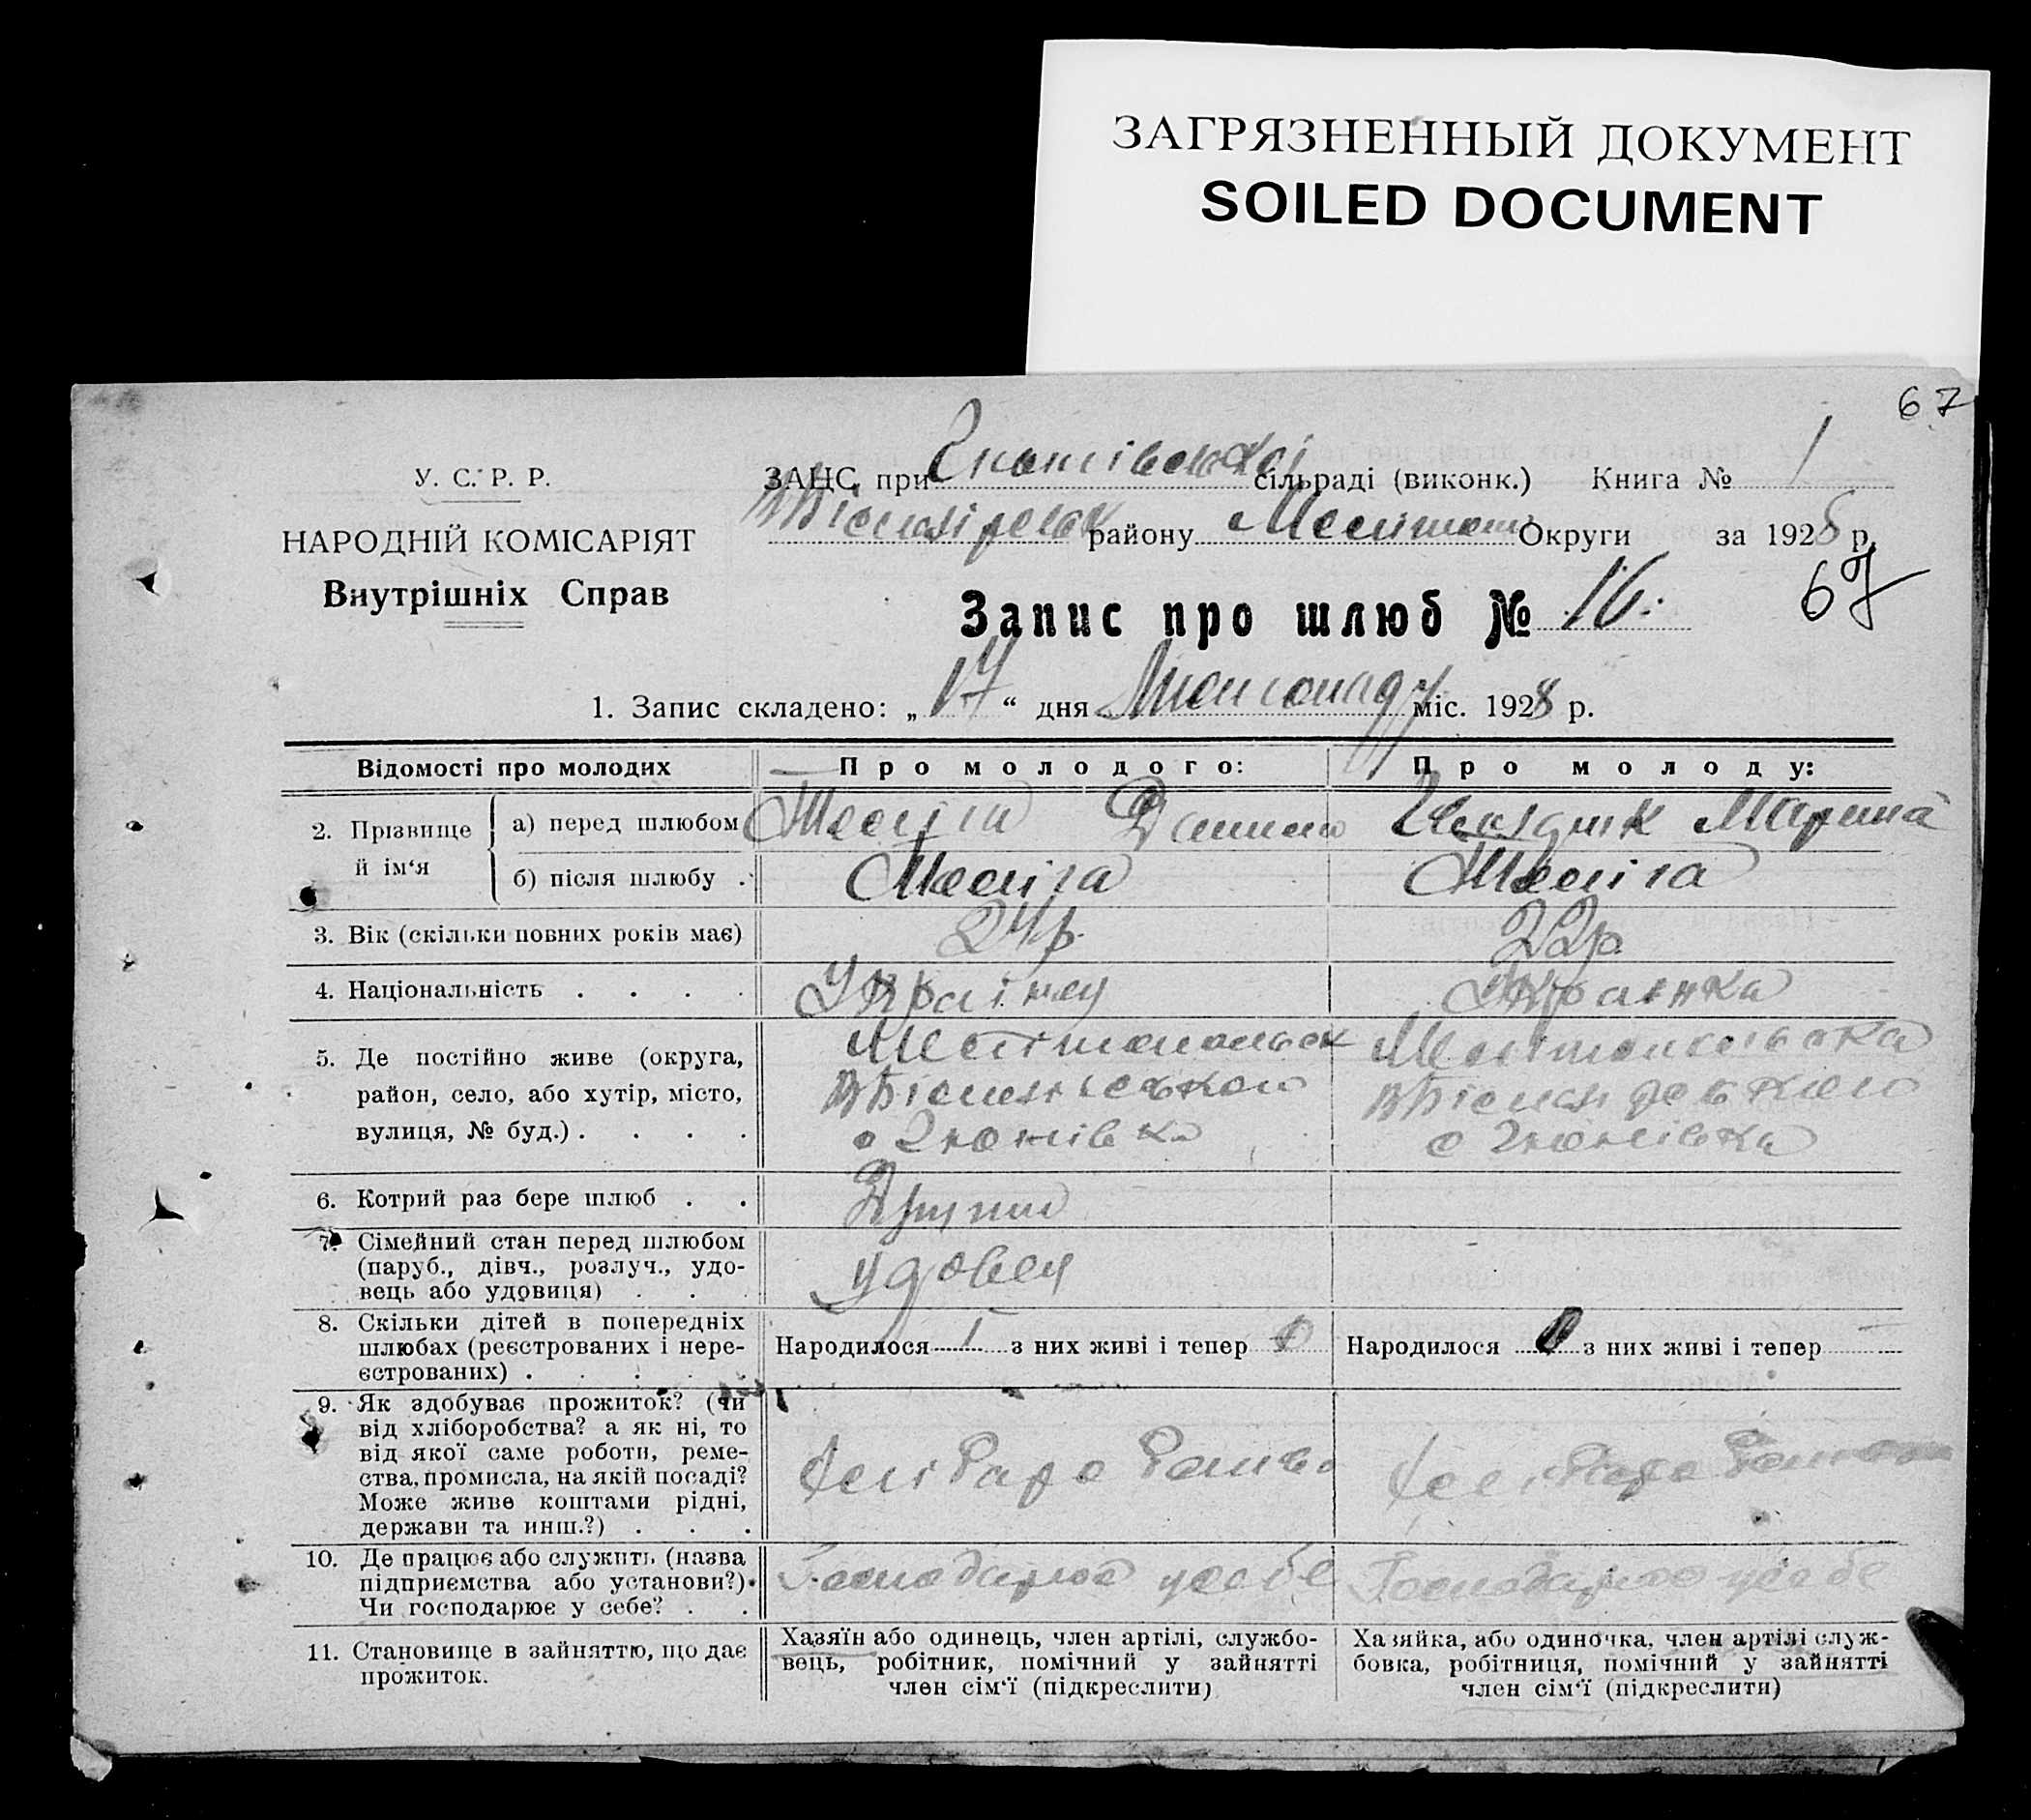 ЗАГРЯЗНЕННЫЙ ДОКУМЕНТ
SOILED DOCUMENT
67
У. С. Р. Р.
ЗАЦС при сільраді (виконк.) Книга № 1
НАРОДНІЙ КОМІСАРІЯТ
району Округи за 1928 р.
Внутрішніх Справ
67
Запис про шлюб № 16.
1. Запис складено: „ 17 “ дня Листопаду міс. 1928 р.
Відомості про молодих
Про молодого:
Про молоду:
2. Прізвище й ім‘я
а) перед шлюбом
Данило
Марина
б) після шлюбу .
3. Вік (скільки повних років має)
24 р.
22 р
4. Національність . . . .
Українец
Украінка
5. Де постійно живе (округа,
район, село, або хутір, місто,
вулиця, № буд.) . . . .
6. Котрий раз бере шлюб . .
Другий
7. Сімейний стан перед шлюбом
(паруб., дівч., розлуч., удо-
вець або удовиця) . . .
удовец
8. Скільки дітей в попередніх
шлюбах (реєстрованих і нере-
єстрованих) . . . . .
Народилося 1 з них живі і тепер 0
Народилося 0 з них живі і тепер —
9. Як здобуває прожиток? (Чи
від хліборобства? а як ні, то
від якої саме роботи, реме-
ства, промисла, на якій посаді?
Може живе коштами рідні,
держави та инш.?) . . .
10. Де працює або служить (назва
підприємства або установи?).
Чи господарює у себе? . .
Господарює у себе
Господарює у себе
11. Становище в зайняттю, що дає
прожиток.
Хазяїн або одинець, член артілі, службо-
вець, робітник, помічний у зайнятті
член сім‘ї (підкреслити)
Хазяйка, або одиночка, член артілі служ-
бовка, робітниця, помічний у зайнятті
член сім‘ї (підкреслити)